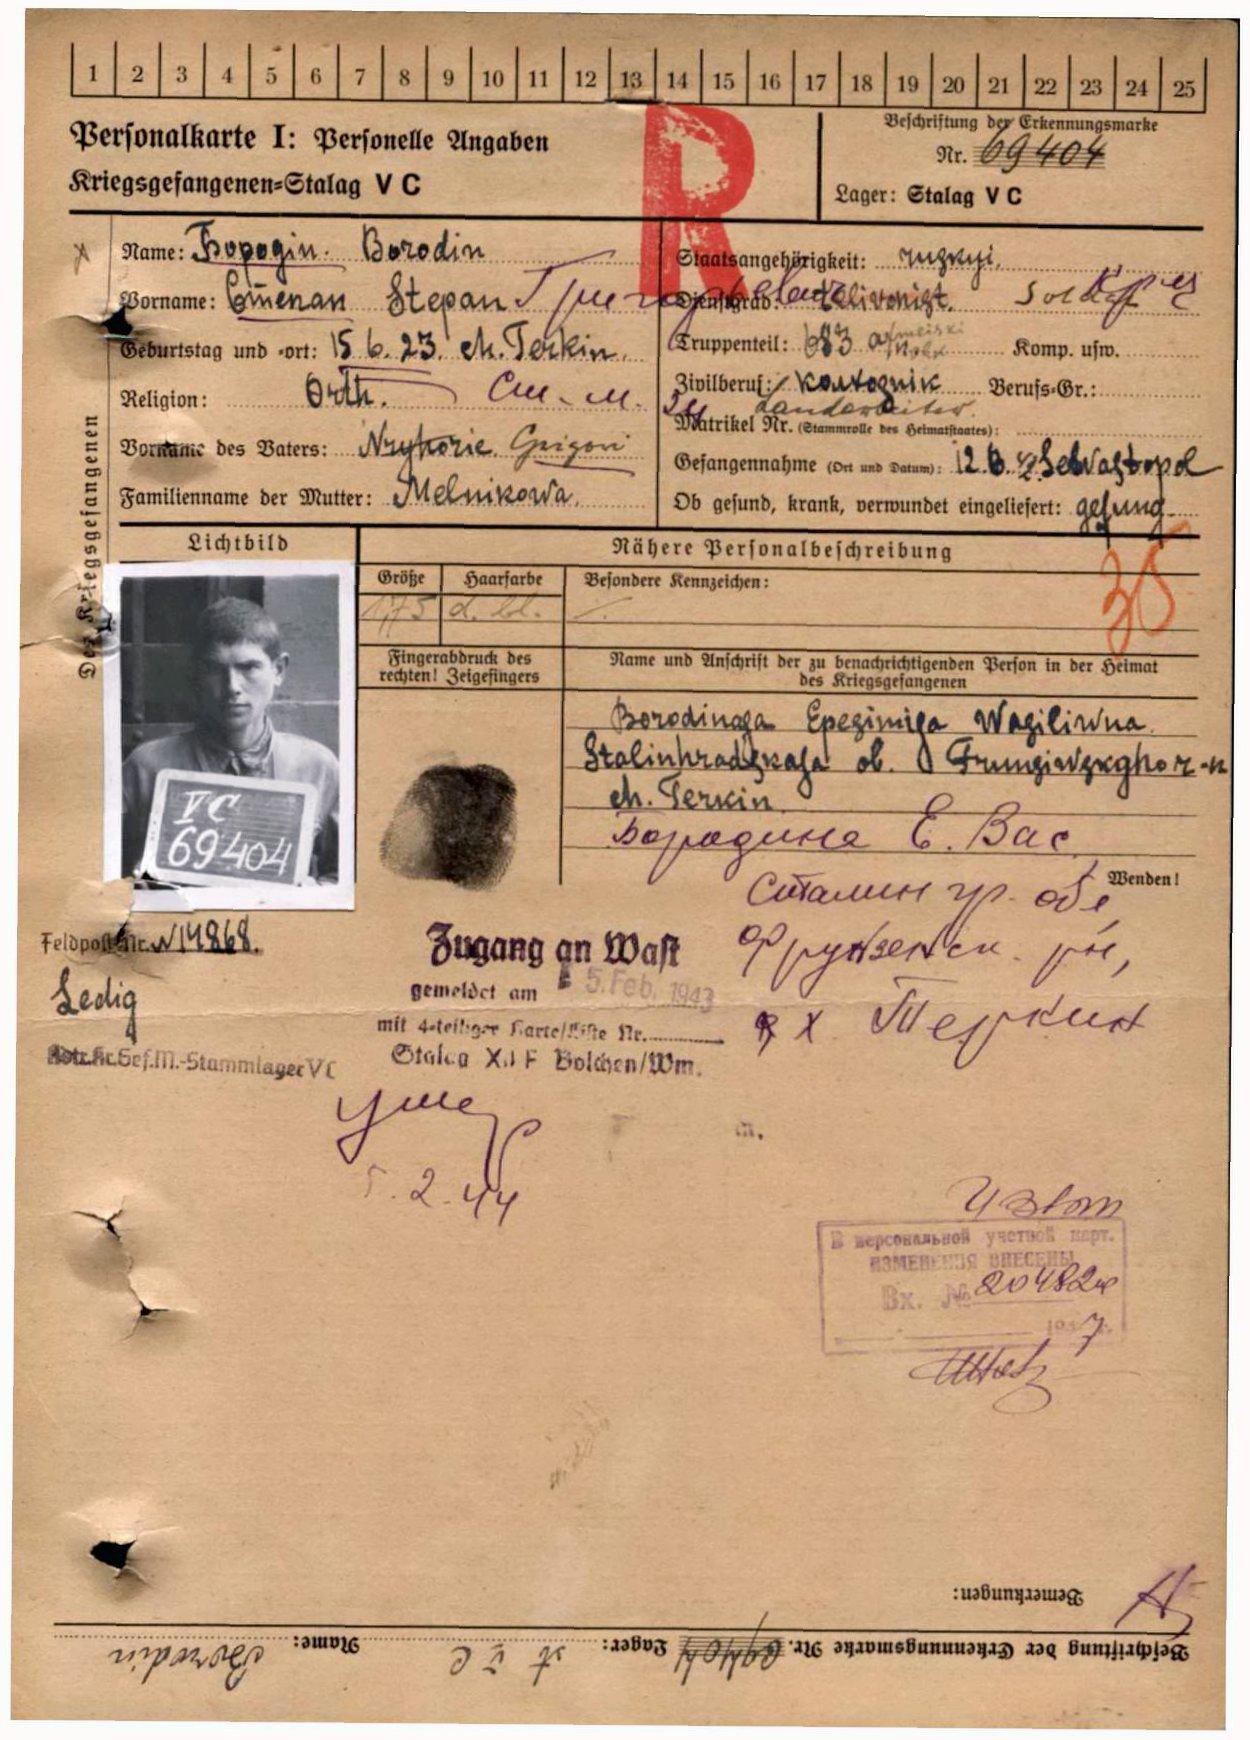 1 2 3 4 5 6 7 8 9 10 11 12 13 14 15 16 17 18 19 20 21 22 23 24 25
Personalkarte I: Personelle Angaben
Kriegsgefangenen-Stalag V C
Beschriftung der Erkennungsmarke
Nr. 69404
Lager: Stalag V C
R
Des Kriegsgefangenen
Name: Бородin. Borodin
Vorname: Степан Stepan Григорьевич
Geburtstag und -ort: 15.6.23. ch. Terkin.
Religion: Orth. Ст. - м.
Vorname des Vaters: Grigori
Familienname der Mutter: Melnikowa.
Staatsangehörigkeit:
Dienstgrad: Soldat
Truppenteil: 683 Komp. usw.
Zivilberuf: колхоzнiк Berufs-Gr.:
Landarbeiter.
Matrikel Nr. (Stammrolle des Heimatstaates):
Gefangennahme (Ort und Datum): 12.6.42. Sewastopol
Ob gesund, krank, verwundet eingeliefert: gesung
Lichtbild
Nähere Personalbeschreibung
35
Größe Haarfarbe Besondere Kennzeichen:
175 d. bl.
Fingerabdruck des rechten! Zeigefingers
Name und Anschrift der zu benachrichtigenden Person in der Heimat
des Kriegsgefangenen
V C
69404
Borodinaja Wasiliwna.
Stalinhradskaja ob.
ch. Terkin.
Бородина Е. Вас
Wenden!
Сталингр. об.
Фрунзенск. рн,
х Теркин
Feldpost-Nr. N14868.
Ledig
Kr.Gef.M.-Stammlager V C
Zugang an Wast
gemeldet am 5. Feb. 1943
mit 4-teiliger Karte/Liste Nr.
Stalag XII F Bolchen/Wm.
5.2.44
В персональной учетной карт.
ИЗМЕНЕНИЯ ВНЕСЕНЫ
Вх. № 20482
194 7
Bemerkungen:
Beschriftung der Erkennungsmarke Nr. 69404 Lager: St V C Name: Borodin